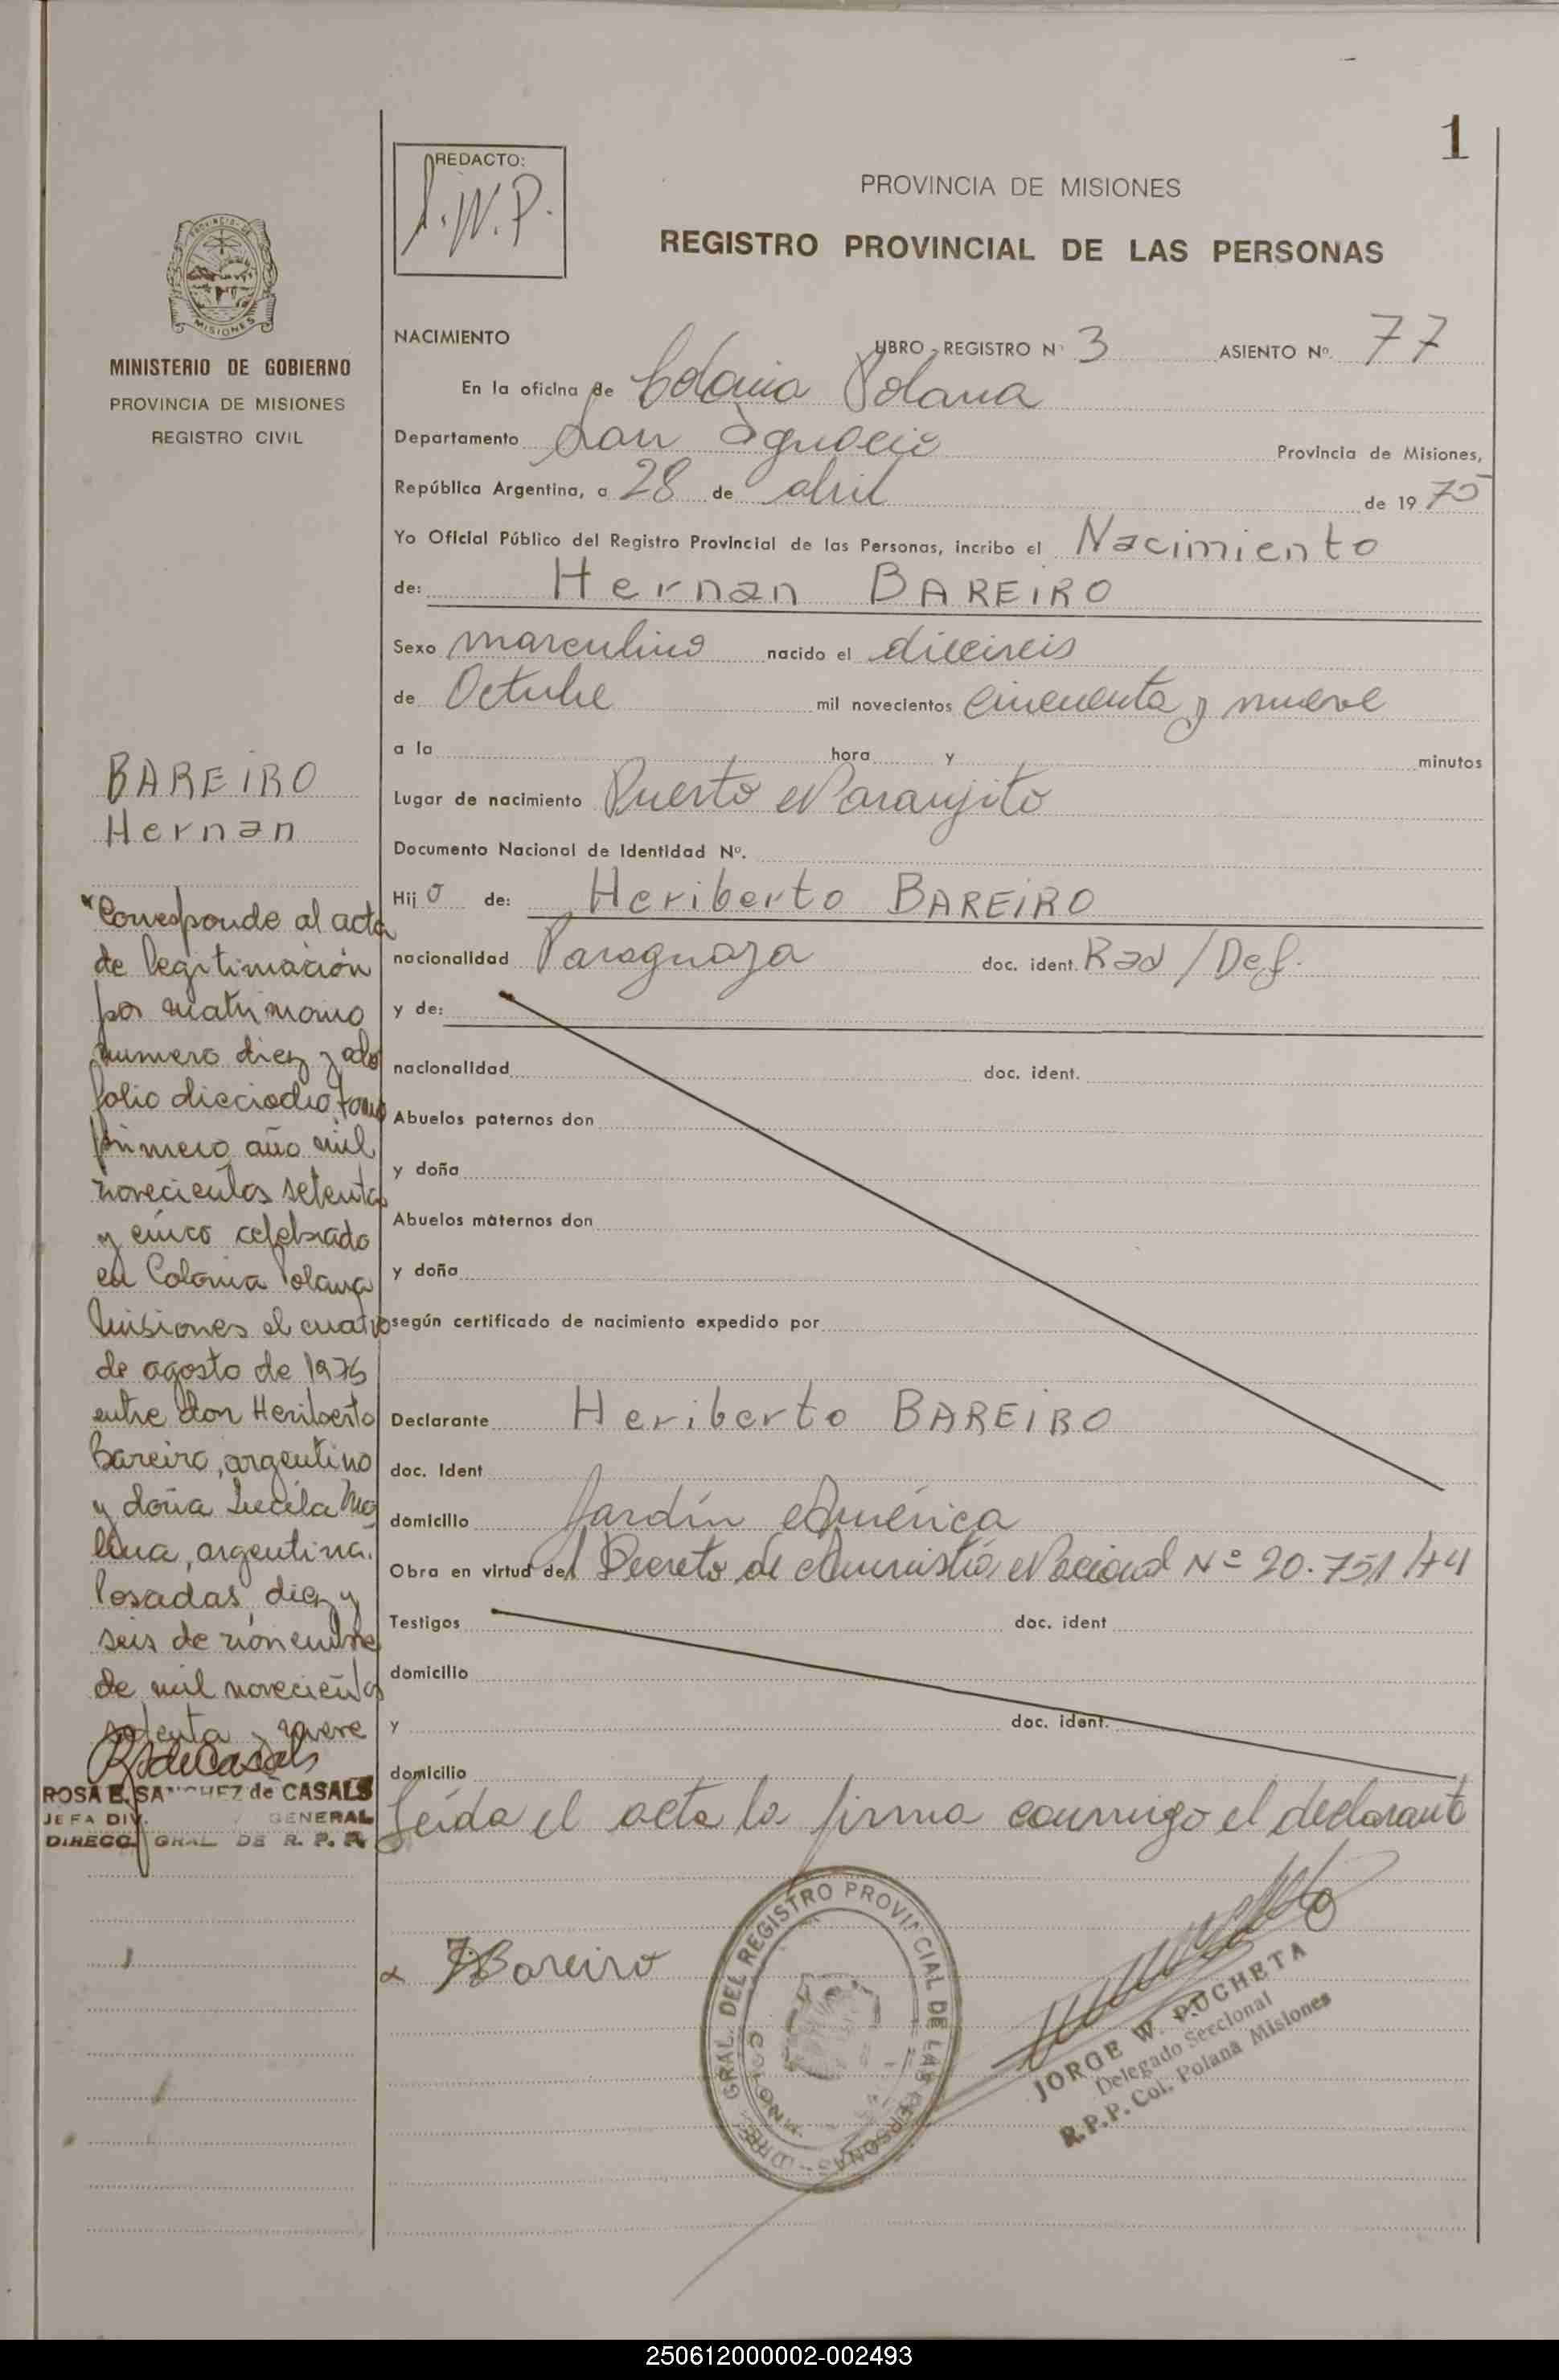 1
REDACTO:
J.W.P.
PROVINCIA DE MISIONES
REGISTRO PROVINCIAL DE LAS PERSONAS
PROVINCIA DE
MISIONES
MINISTERIO DE GOBIERNO
PROVINCIA DE MISIONES
REGISTRO CIVIL
NACIMIENTO LIBRO - REGISTRO Nº 3 ASIENTO Nº. 77
En la oficina de Colonia Polana
Departamento San Ignacio Provincia de Misiones,
República Argentina, a 28 de abril de 1975
Yo Oficial Público del Registro Provincial de las Personas, incribo el Nacimiento
de: Hernan BAREIRO
Sexo masculino nacido el dieciseis
de Octubre mil novecientos cincuenta y nueve
a la hora y minutos
Lugar de nacimiento Puerto Naranjito
Documento Nacional de Identidad Nº.
Hijo de: Heriberto BAREIRO
nacionalidad Paraguaya doc. ident. Rad/Def.
y de:
nacionalidad doc. ident.
Abuelos paternos don
y doña
Abuelos maternos don
y doña
según certificado de nacimiento expedido por
Declarante Heriberto BAREIRO
doc. Ident
domicilio Jardín América
Obra en virtud del Decreto de Amnistía Nacional Nº 20.751/74
Testigos doc. ident
domicilio
y doc. ident.
domicilio
Leída el acta la firma conmigo el declarant
BAREIRO
Hernan
"Corresponde al acta
de legitimación
por matrimonio
numero diez y ocho
folio dieciocho tomo
primero año mil
novecientos setenta
y cinco celebrado
en Colonia Polana
Misiones el cuatro
de agosto de 1975
entre don Heriberto
Bareiro, argentino
y doña Lucila Mo
lina, argentina.
Posadas, diez y
seis de noviembre
de mil novecientos
setenta y nueve
ROSA E. SANCHEZ de CASALS
JEFA DIV. GENERAL
DIRECC. GRAL DE R. P. P.
HBareiro
DIREC. GRAL. DEL REGISTRO PROVINCIAL DE LAS PERSONAS
JORGE W. PUCHETA
Delegado Seccional
R.P.P. Col. Polana Misiones
250612000002-002493